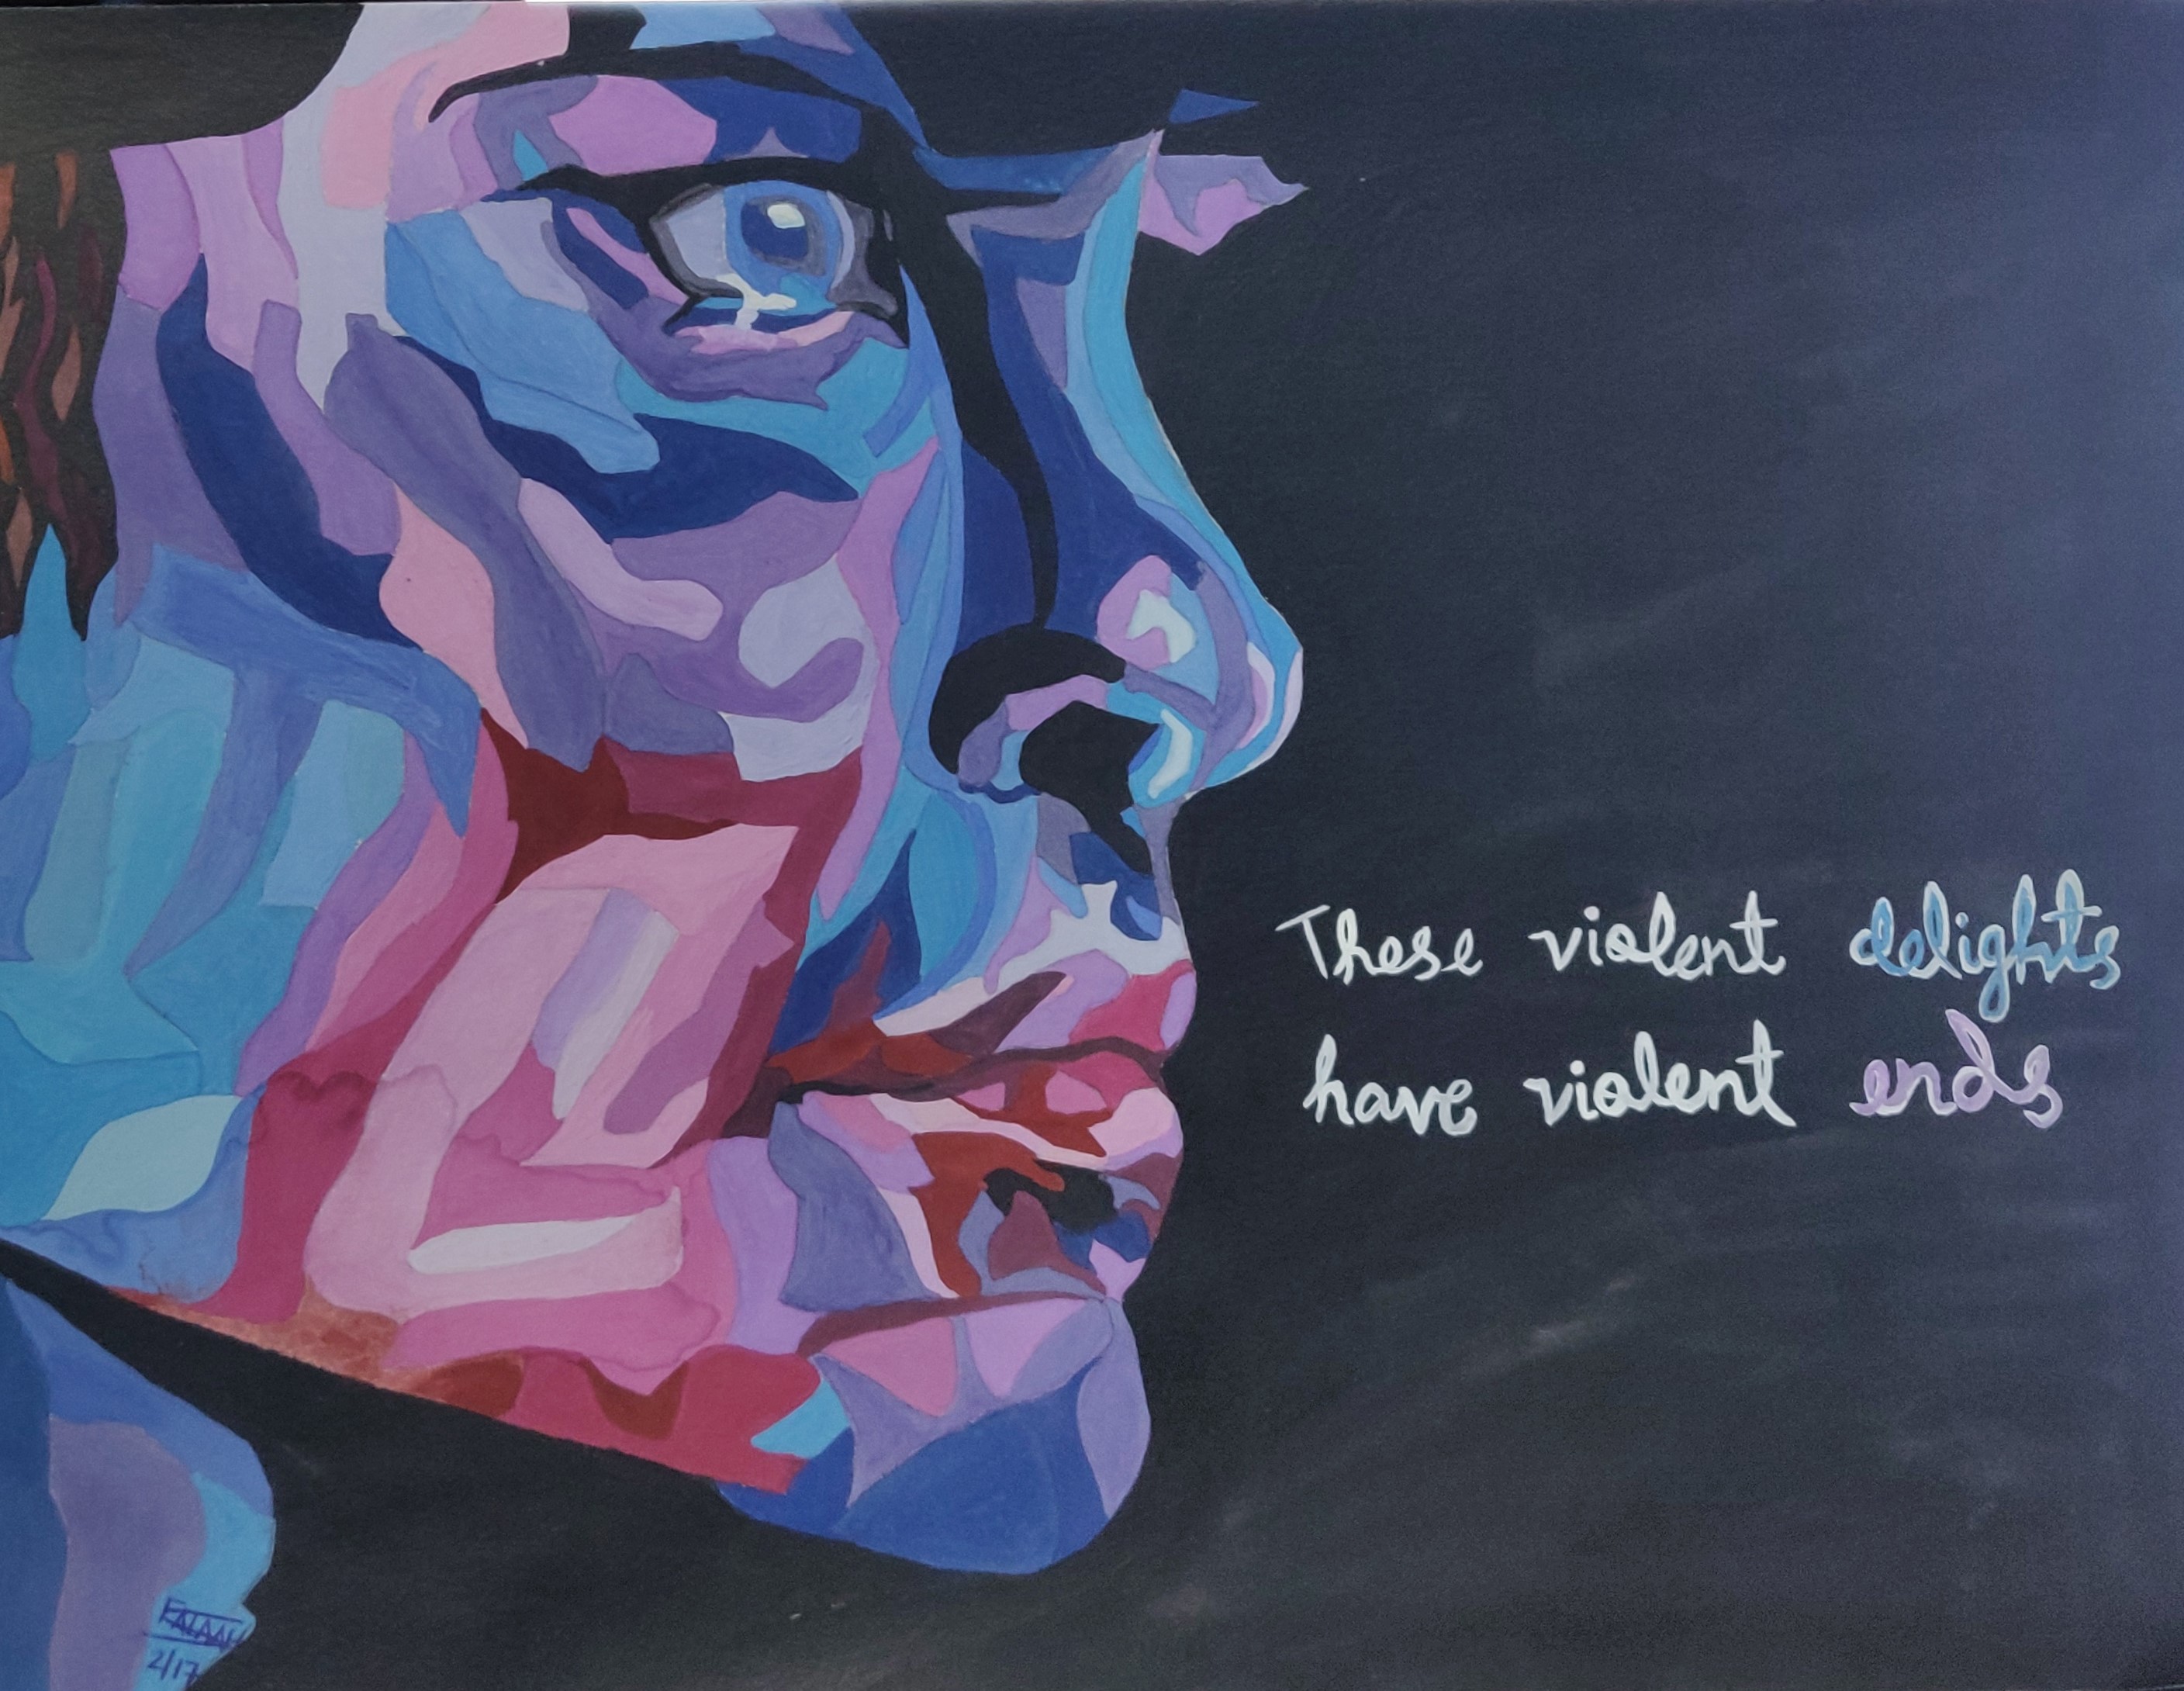 These violent delights
have violent ends
2/17